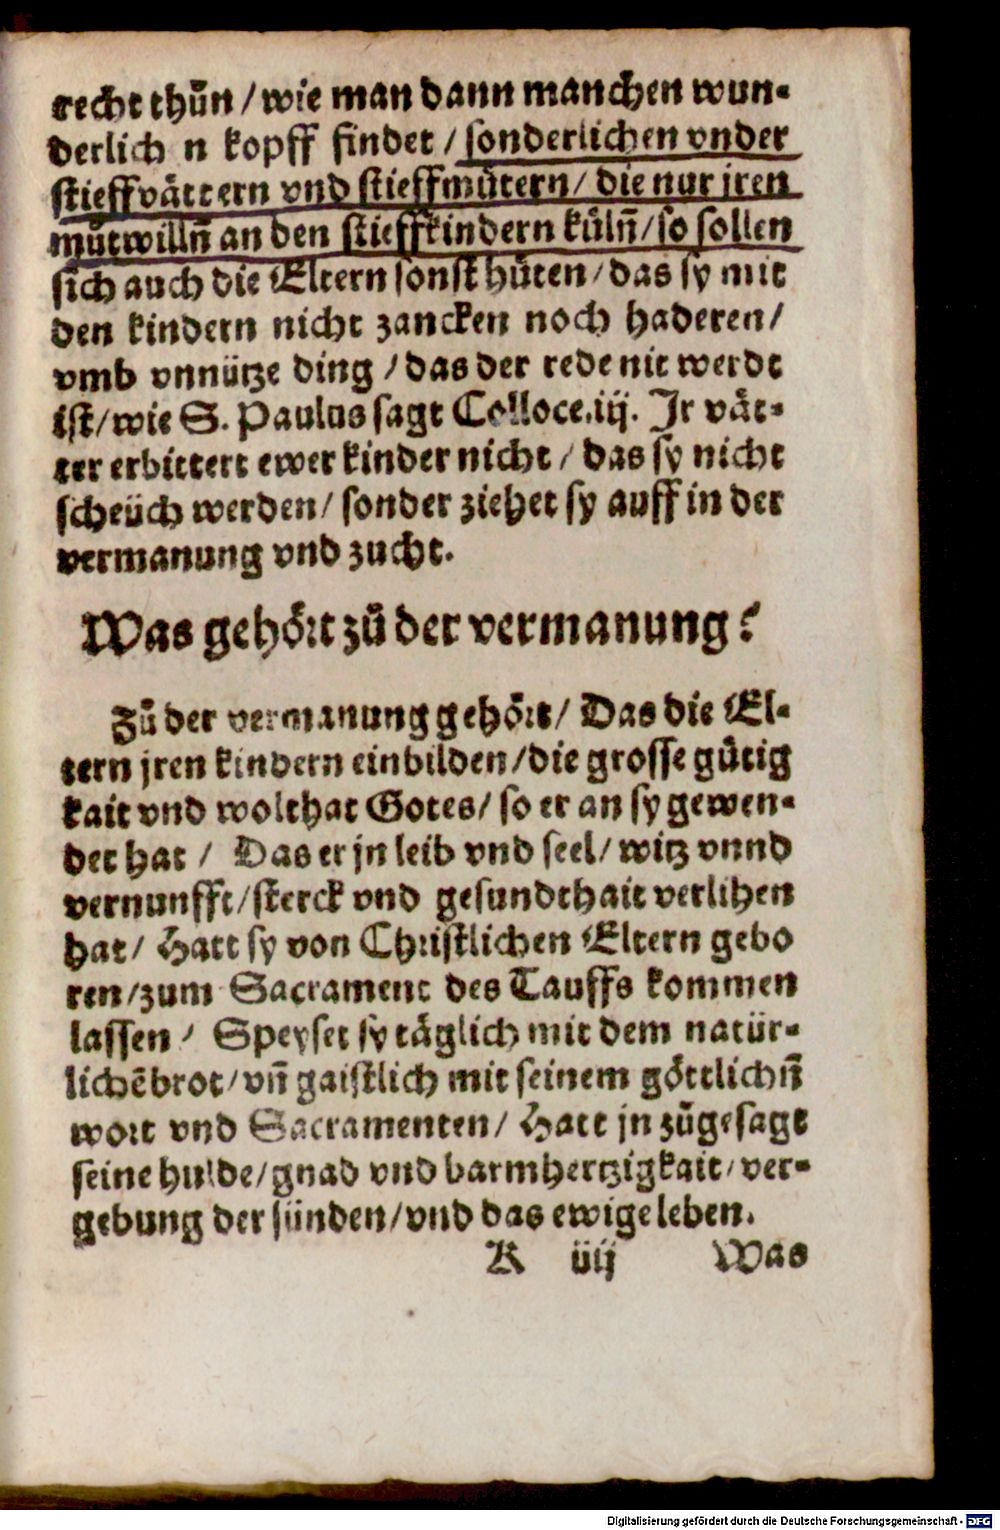 recht thůn / wie man dann manchen wun-
derlich n kopff findet / sonderlichen vnder
stieffvättern vnd stieffmůtern / die nur jren
můtwilln̄ an den stieffkindern kůln̄ / so sollen
sich auch die Eltern sonst hůten / das sy mit
den kindern nicht zancken noch haderen /
vmb vnnütze ding / das der rede nit werdt
ist / wie S. Paulus sagt Colloce.iij. Jr vät-
ter erbittert ewer kinder nicht / das sy nicht
scheüch werden / sonder ziehet sy auff in der
vermanung vnd zucht.
Was gehört zů der vermanung?
Zů der vermanung gehört / Das die El-
tern jren kindern einbilden / die grosse gůtig
kait vnd wolthat Gotes / so er an sy gewen-
det hat / Das er jn leib vnd seel / witz vnnd
vernunfft / sterck vnd gesundthait verlihen
hat / Hatt sy von Christlichen Eltern gebo
ren / zum Sacrament des Tauffs kommen
lassen / Speyset sy täglich mit dem natür-
lichē brot / vn̄ gaistlich mit seinem göttlichn̄
wort vnd Sacramenten / Hatt jn zůgesagt
seine hulde / gnad vnd barmhertzigkait / ver-
gebung der sünden / vnd das ewige leben.
K iiij Was
Digitalisierung gefördert durch die Deutsche Forschungsgemeinschaft - DFG